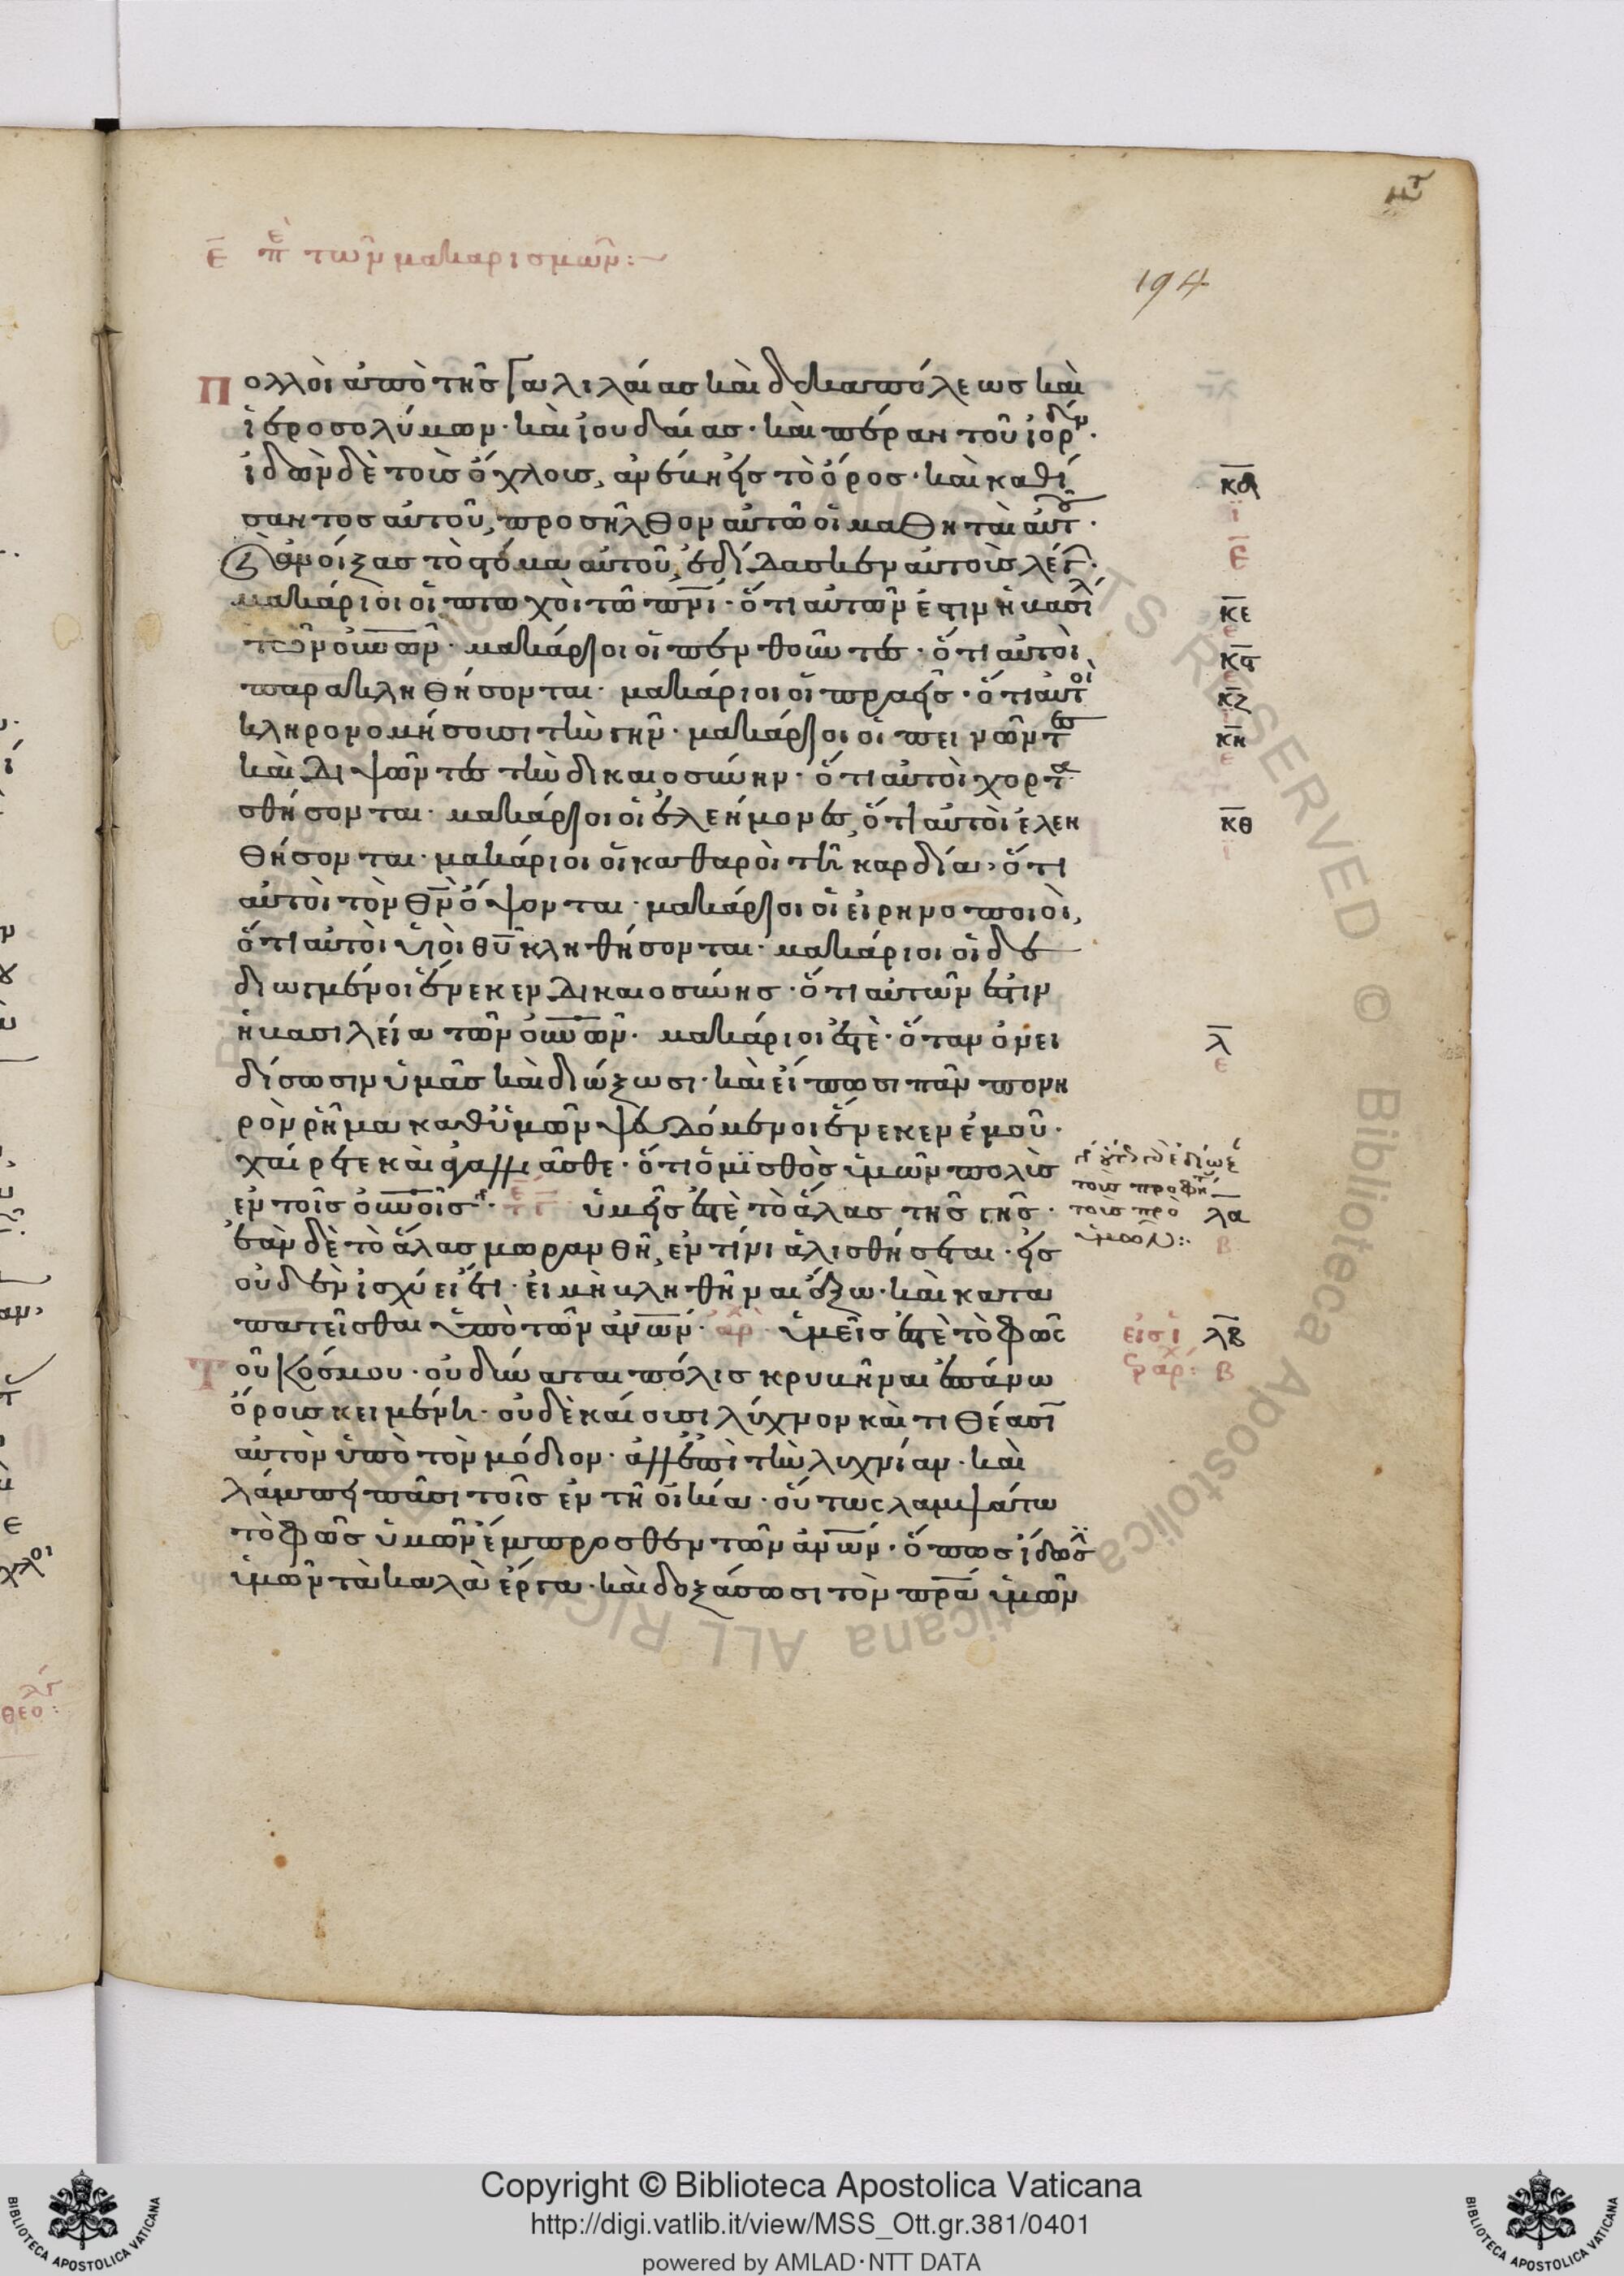 ε̅ πε̅ τῶν μακαρισμῶν:
194
Πολλοὶ ἀπὸ τῆς Γαλιλαίας καὶ δεκαπόλεως καὶ
ἱεροσολύμων· καὶ ἰουδαίας· καὶ πέραν τοῦ ἰορδν·
ἰδὼν δὲ τοὺς ὄχλους, ἀνέβη εἰς τὸ ὄρος· καὶ καθί
κδ
σαντος αὐτοῦ, προσῆλθον αὐτῶ οἱ μαθηταὶ αὐτοῦ·
ε̅
ἀνοίξας τὸ στόμα αὐτοῦ, ἐδίδασκεν αὐτοὺς λέγ·
μακάριοι οἱ πτωχοὶ τῶ πνι̅· ὅτι αὐτῶν ἐστιν ἡ βασιλ
κε
τῶν οὐνων̅· μακάριοι οἱ πενθοῦντες· ὅτι αὐτοὶ
κϛ
παρακληθήσονται· μακάριοι οἱ πραεῖς· ὅτι αὐτοὶ
κζ
κληρονομήσουσι τὴν γῆν· μακάριοι οἱ πεινῶντες
κη
καὶ διψῶντες τὴν δικαιοσύνην· ὅτι αὐτοὶ χορτα
σθήσονται· μακάριοι οἱ ἐλεήμονες, ὅτι αὐτοὶ ἐλεη
κθ
θήσονται· μακάριοι οἱ καθαροὶ τῆ καρδία, ὅτι
αὐτοὶ τὸν θν̅ ὄψονται· μακάριοι οἱ εἰρηνοποιοὶ,
ὅτι αὐτοὶ υἱοὶ θυ̅ κληθήσονται· μακάριοι οἱ δε
διωγμένοι ἕνεκεν δικαιοσύνης· ὅτι αὐτῶν ἐστιν
ἡ βασιλεία τῶν οὐνων̅· μακάριοι ἐστὲ· ὅταν ὀνει
λ
δίσωσιν ὑμᾶς καὶ διώξωσι· καὶ εἴπωσι πᾶν πονη
ρὸν ῥῆμα καθ' ὑμῶν ψευδόμενοι ἕνεκεν ἐμοῦ·
χαίρετε καὶ ἀγαλλιᾶσθε· ὅτι ὁ μισθὸς ὑμῶν πολὺς
ἐν τοῖς οὐνοῖς· ὑμεῖς ἐστὲ τὸ ἅλας τῆς γῆς·
τοὺς προφή
τοὺς πρὸ
ὑμῶν:
λα
ἐὰν δὲ τὸ ἅλας μωρανθῆ, ἐν τίνι ἁλισθήσεται· εἰς
β
οὐδὲν ἰσχύει ἔτι· εἰ μὴ βληθῆναι ἔξω· καὶ κατα
πατεῖσθαι ὑπὸ τῶν ἀνων̅· ἀρ ὑμεῖς ἐστὲ τὸ φῶς
λβ
Τοῦ κόσμου· οὐ δύναται πόλις κρυβῆναι ἐπάνω
β
ὄρους κειμένη· οὐδὲ καίουσι λύχνον καὶ τιθέασι
αὐτὸν ὑπὸ τὸν μόδιον· ἀλλ' ἐπὶ τὴν λυχνίαν· καὶ
λάμπει πᾶσι τοῖς ἐν τῆ οἰκία· οὕτως λαμψάτω
τὸ φῶς ὑμῶν ἔμπροσθεν τῶν ἀνων̅· ὅπως ἴδωσ
ὑμῶν τὰ καλὰ ἔργα· καὶ δοξάσωσι τὸν πρα̅ ὑμῶν
Copyright © Biblioteca Apostolica Vaticana
http://digi.vatlib.it/view/MSS_Ott.gr.381/0401
powered by AMLAD·NTT DATA
BIBLIOTECA APOSTOLICA VATICANA
BIBLIOTECA APOSTOLICA VATICANA